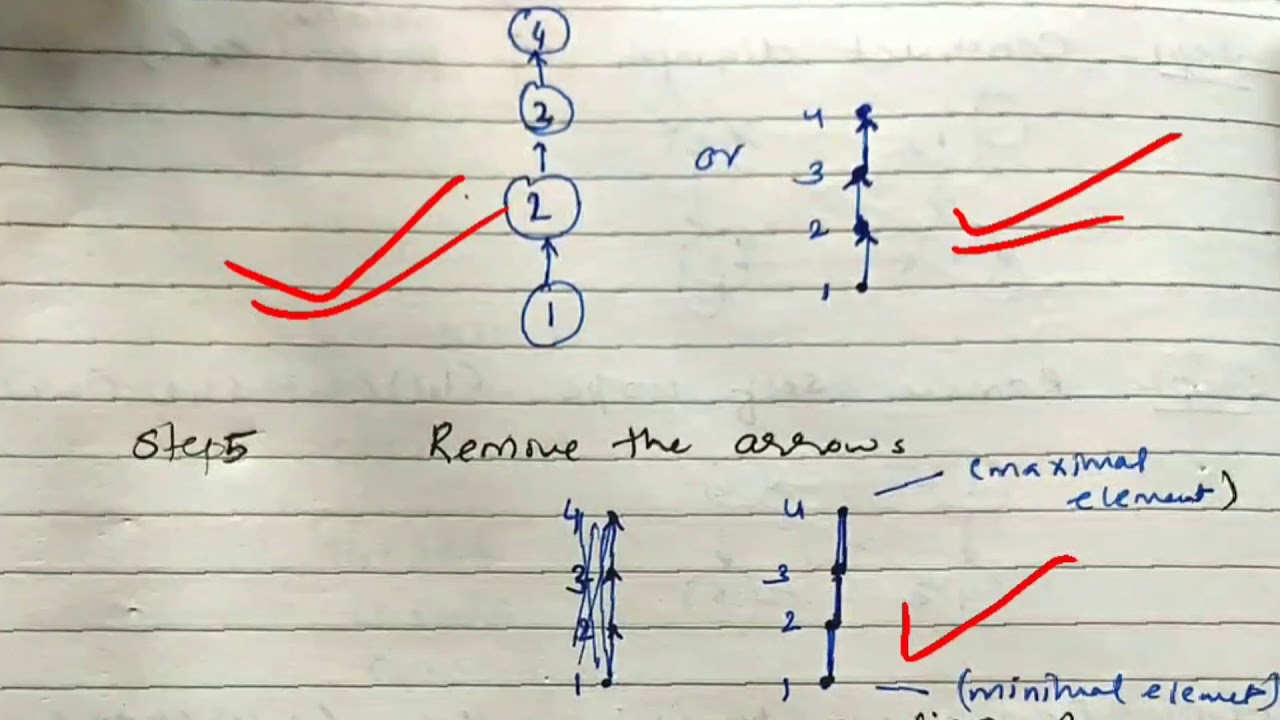 4
3
2
1
or
4
3
2
1
Step5 Remove the arrows
(maximal
element)
4 4
3 3
2 2
1 1
(minimal elemet)